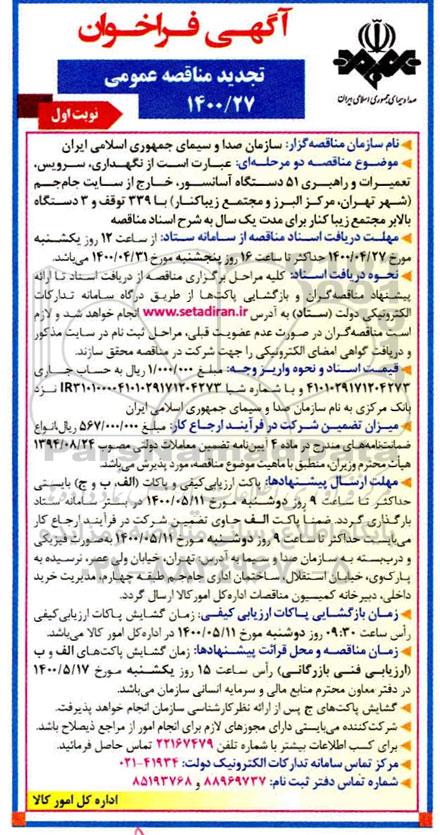 آگهی فراخوان
تجدید مناقصه عمومی
۱۴۰۰/۲۷
نوبت اول
صدا و سیمای جمهوری اسلامی ایران
نام سازمان مناقصه‌گزار: سازمان صدا و سیمای جمهوری اسلامی ایران
موضوع مناقصه دو مرحله‌ای: عبارت است از نگهداری، سرویس،
تعمیرات و راهبری ۵۱ دستگاه آسانسور، خارج از سایت جام‌جم
(شهر تهران، مرکز البرز و مجتمع زیباکنار) با ۳۳۹ توقف و ۳ دستگاه
بالابر مجتمع زیبا کنار برای مدت یک سال به شرح اسناد مناقصه
مهلت دریافت اسناد مناقصه از سامانه ستاد: از ساعت ۱۲ روز یکشنبه
مورخ ۱۴۰۰/۰۴/۲۷ حداکثر تا ساعت ۱۶ روز پنجشنبه مورخ ۱۴۰۰/۰۴/۳۱ می‌باشد.
نحوه دریافت اسناد: کلیه مراحل برگزاری مناقصه از دریافت اسناد تا ارائه
پیشنهاد مناقصه‌گران و بازگشایی پاکت‌ها از طریق درگاه سامانه تدارکات
الکترونیکی دولت (ستاد) به آدرس www.setadiran.ir انجام خواهد شد و لازم
است مناقصه‌گران در صورت عدم عضویت قبلی، مراحل ثبت نام در سایت مذکور
و دریافت گواهی امضای الکترونیکی را جهت شرکت در مناقصه محقق سازند.
قیمت اسناد و نحوه واریز وجه: مبلغ ۱/۰۰۰/۰۰۰ ریال به حساب جاری
۴۱۰۱۰۲۹۱۷۱۲۰۴۲۷۳ و با شماره شبا IR۳۱۰۱۰۰۰۰۴۱۰۱۰۲۹۱۷۱۲۰۴۲۷۳ نزد
بانک مرکزی به نام سازمان صدا و سیمای جمهوری اسلامی ایران
میزان تضمین شرکت در فرآیند ارجاع کار: مبلغ ۵۶۷/۰۰۰/۰۰۰ ریال انواع
ضمانت‌نامه‌های مندرج در ماده ۴ آیین‌نامه تضمین معاملات دولتی مصوب ۱۳۹۴/۰۸/۲۴
هیأت محترم وزیران، منطبق با ماهیت موضوع مناقصه، مورد پذیرش می‌باشد.
مهلت ارسال پیشنهادها: پاکت ارزیابی کیفی و پاکات (الف، ب و ج) بایستی
حداکثر تا ساعت ۹ روز دوشنبه مورخ ۱۴۰۰/۰۵/۱۱ در بستر سامانه ستاد
بارگذاری گردد. ضمناً پاکت الف حاوی تضمین شرکت در فرآیند ارجاع کار
می‌بایست حداکثر تا ساعت ۹ روز دوشنبه مورخ ۱۴۰۰/۰۵/۱۱ به‌صورت فیزیکی
و درب‌بسته به سازمان صدا و سیما به آدرس تهران، خیابان ولی عصر، نرسیده به
پارک‌وی، خیابان استقلال، ساختمان اداری جام‌جم طبقه چهارم، مدیریت خرید
داخلی، دبیرخانه کمیسیون مناقصات اداره کل امور کالا ارسال گردد.
زمان بازگشایی پاکات ارزیابی کیفی: زمان گشایش پاکات ارزیابی کیفی
رأس ساعت ۰۹:۳۰ روز دوشنبه مورخ ۱۴۰۰/۰۵/۱۱ در اداره کل امور کالا می‌باشد.
زمان مناقصه و محل قرائت پیشنهادها: زمان گشایش پاکت‌های الف و ب
(ارزیابی فنی بازرگانی) رأس ساعت ۱۵ روز یکشنبه مورخ ۱۴۰۰/۵/۱۷
در دفتر معاون محترم منابع مالی و سرمایه انسانی سازمان می‌باشد.
گشایش پاکت‌های ج پس از ارائه نظر کارشناسی سازمان انجام خواهد پذیرفت.
شرکت‌کننده می‌بایستی دارای مجوزهای لازم برای انجام امور از مراجع ذیصلاح باشد.
برای کسب اطلاعات بیشتر با شماره تلفن ۲۲۱۶۷۴۷۹ تماس حاصل فرمائید.
مرکز تماس سامانه تدارکات الکترونیک دولت: ۴۱۹۳۴-۰۲۱
شماره تماس دفتر ثبت نام: ۸۸۹۶۹۷۳۷ و ۸۵۱۹۳۷۶۸
اداره کل امور کالا